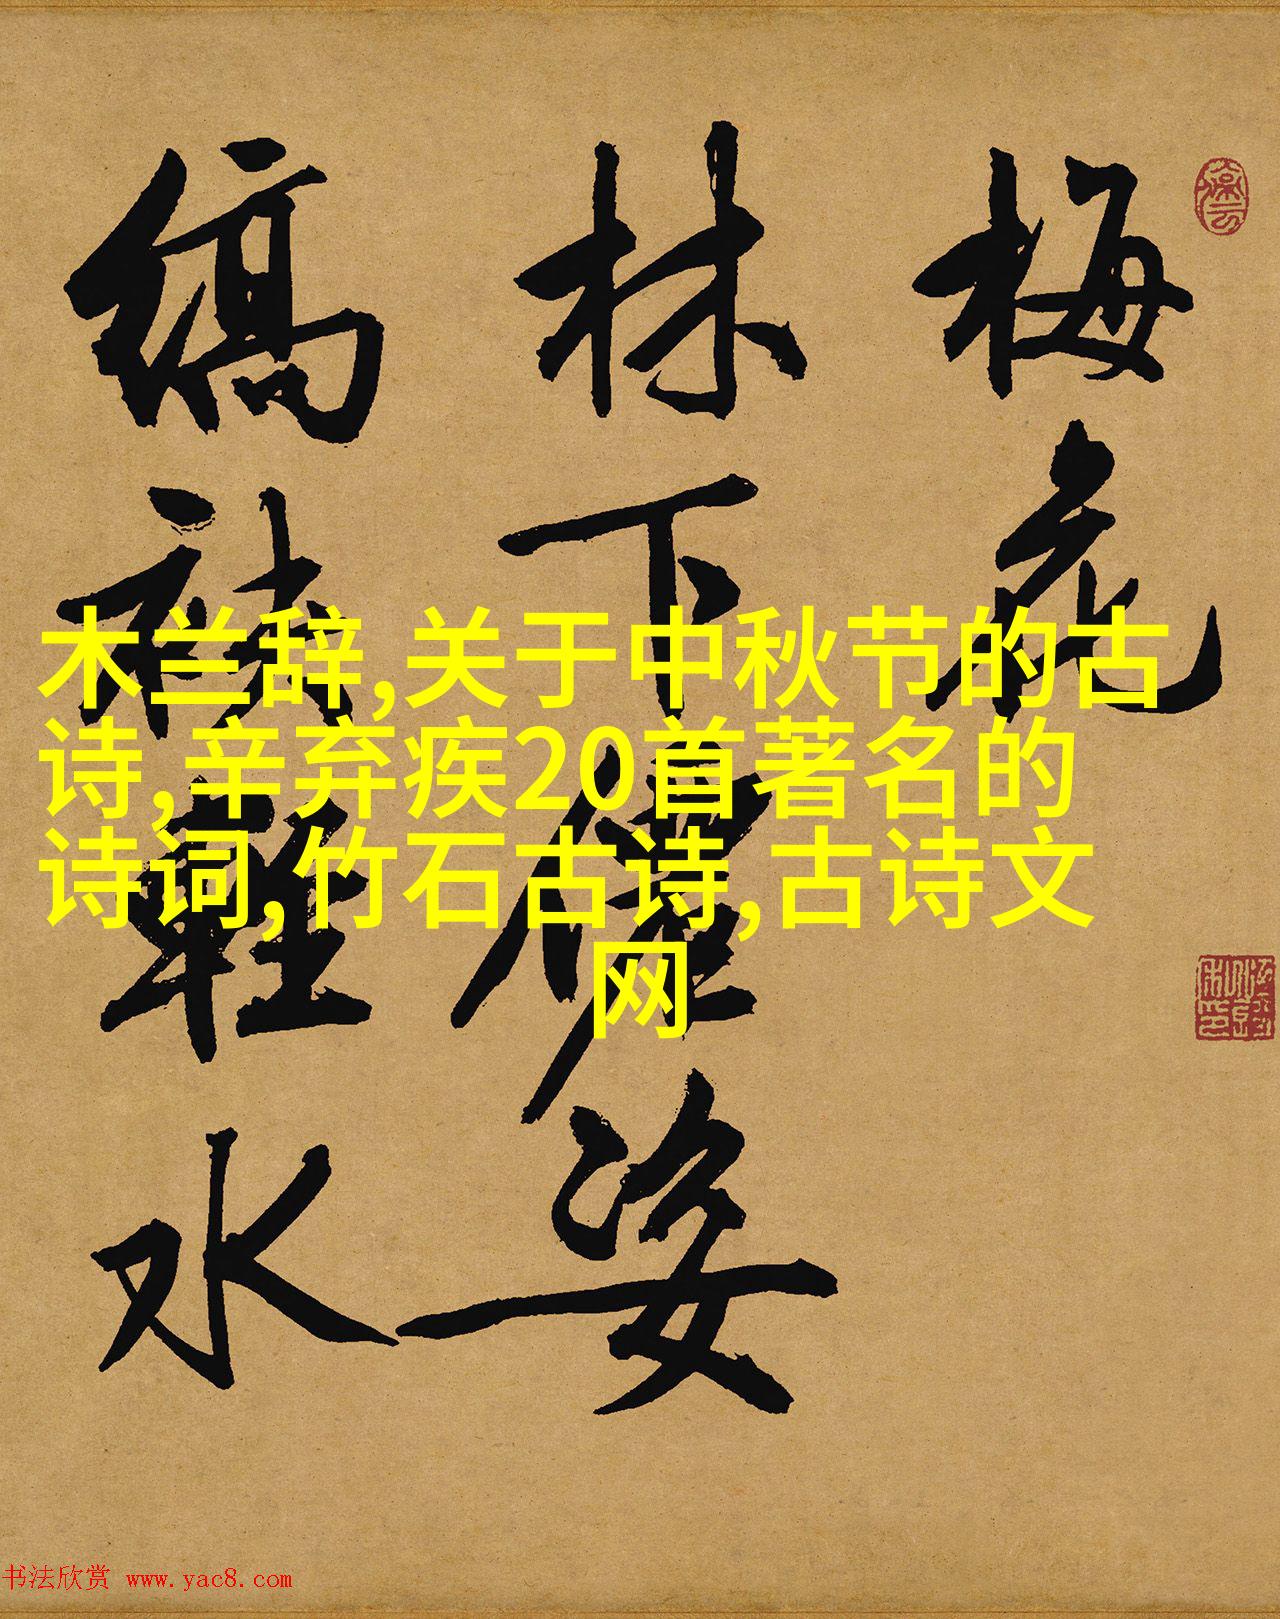 梅花
林下僊姿
縞袂輕水
木兰辞,关于中秋节的古
诗,辛弃疾20首著名的
诗词,竹石古诗,古诗文
网
书法欣赏 www.yac8.com